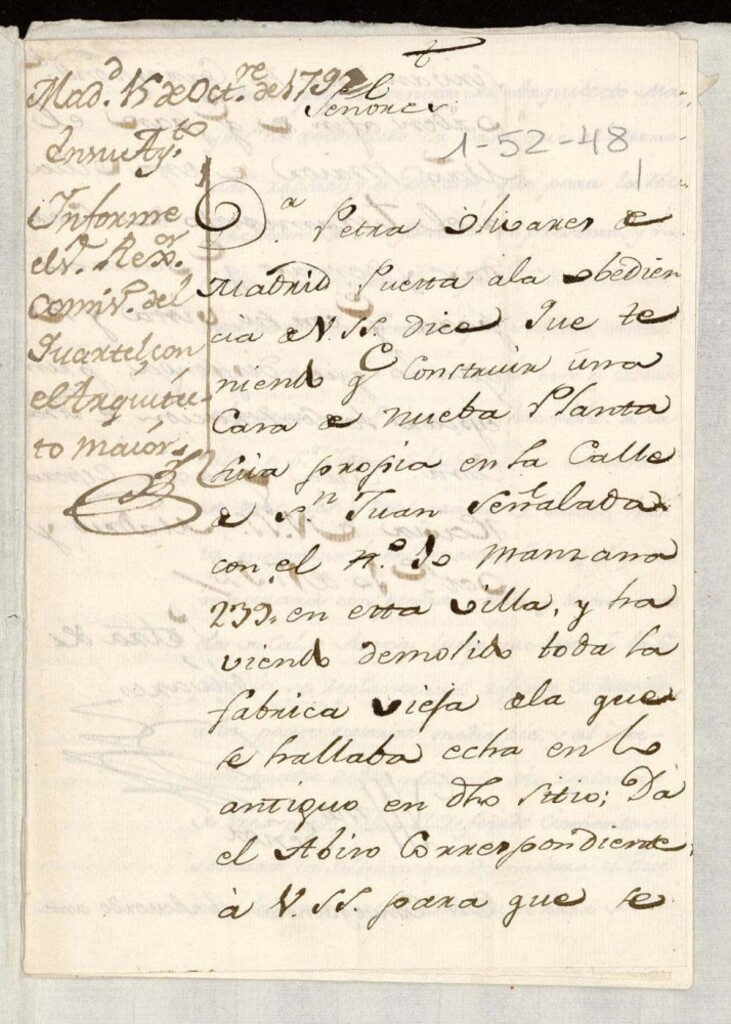 Mad.d 15 de Oct.re de 1792
Señores
En su Ay.to
1-52-48
1
Informe
el S.r Rex.or
comis.o del
Quartel con
el Arquitec
to maior
D.a Petra Olivares de
Madrid Puesta ala obedien
cia de V.SS. dice Que te
niendo q.e Construir una
Casa de nueba Planta
suia propia en la Calle
de S.n Juan Señalada
con el N.o 10 Manzana
239. en esta villa, y ha
viendo demolido toda la
fabrica vieja dela que
se hallaba echa en lo
antiguo en dho sitio; Da
el Abiso Correspondiente
à V.SS. para que se